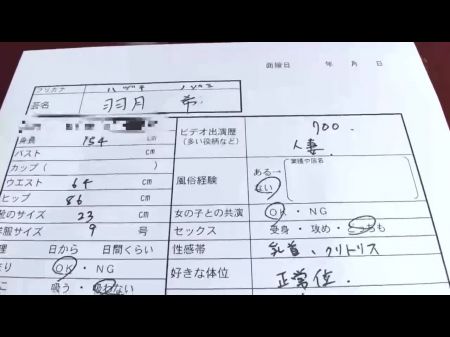 面接日 年 月 日
フリガナ ハヅキ ノゾミ
芸名 羽月 希
身長 154 cm
バスト cm
カップ (
ウエスト 64 cm
ヒップ 86 cm
靴のサイズ 23 cm
洋服サイズ 9 号
理 日から 日間くらい
OK ・ NG
吸う ・ 吸わない
ビデオ出演歴 700.
(多い役柄など) 人妻
風俗経験 ある→ (業種や店名
ない
女の子との共演 OK ・ NG
セックス 受身 ・ 攻め ・ どっちも
性感帯 乳首、クリトリス
好きな体位 正常位.